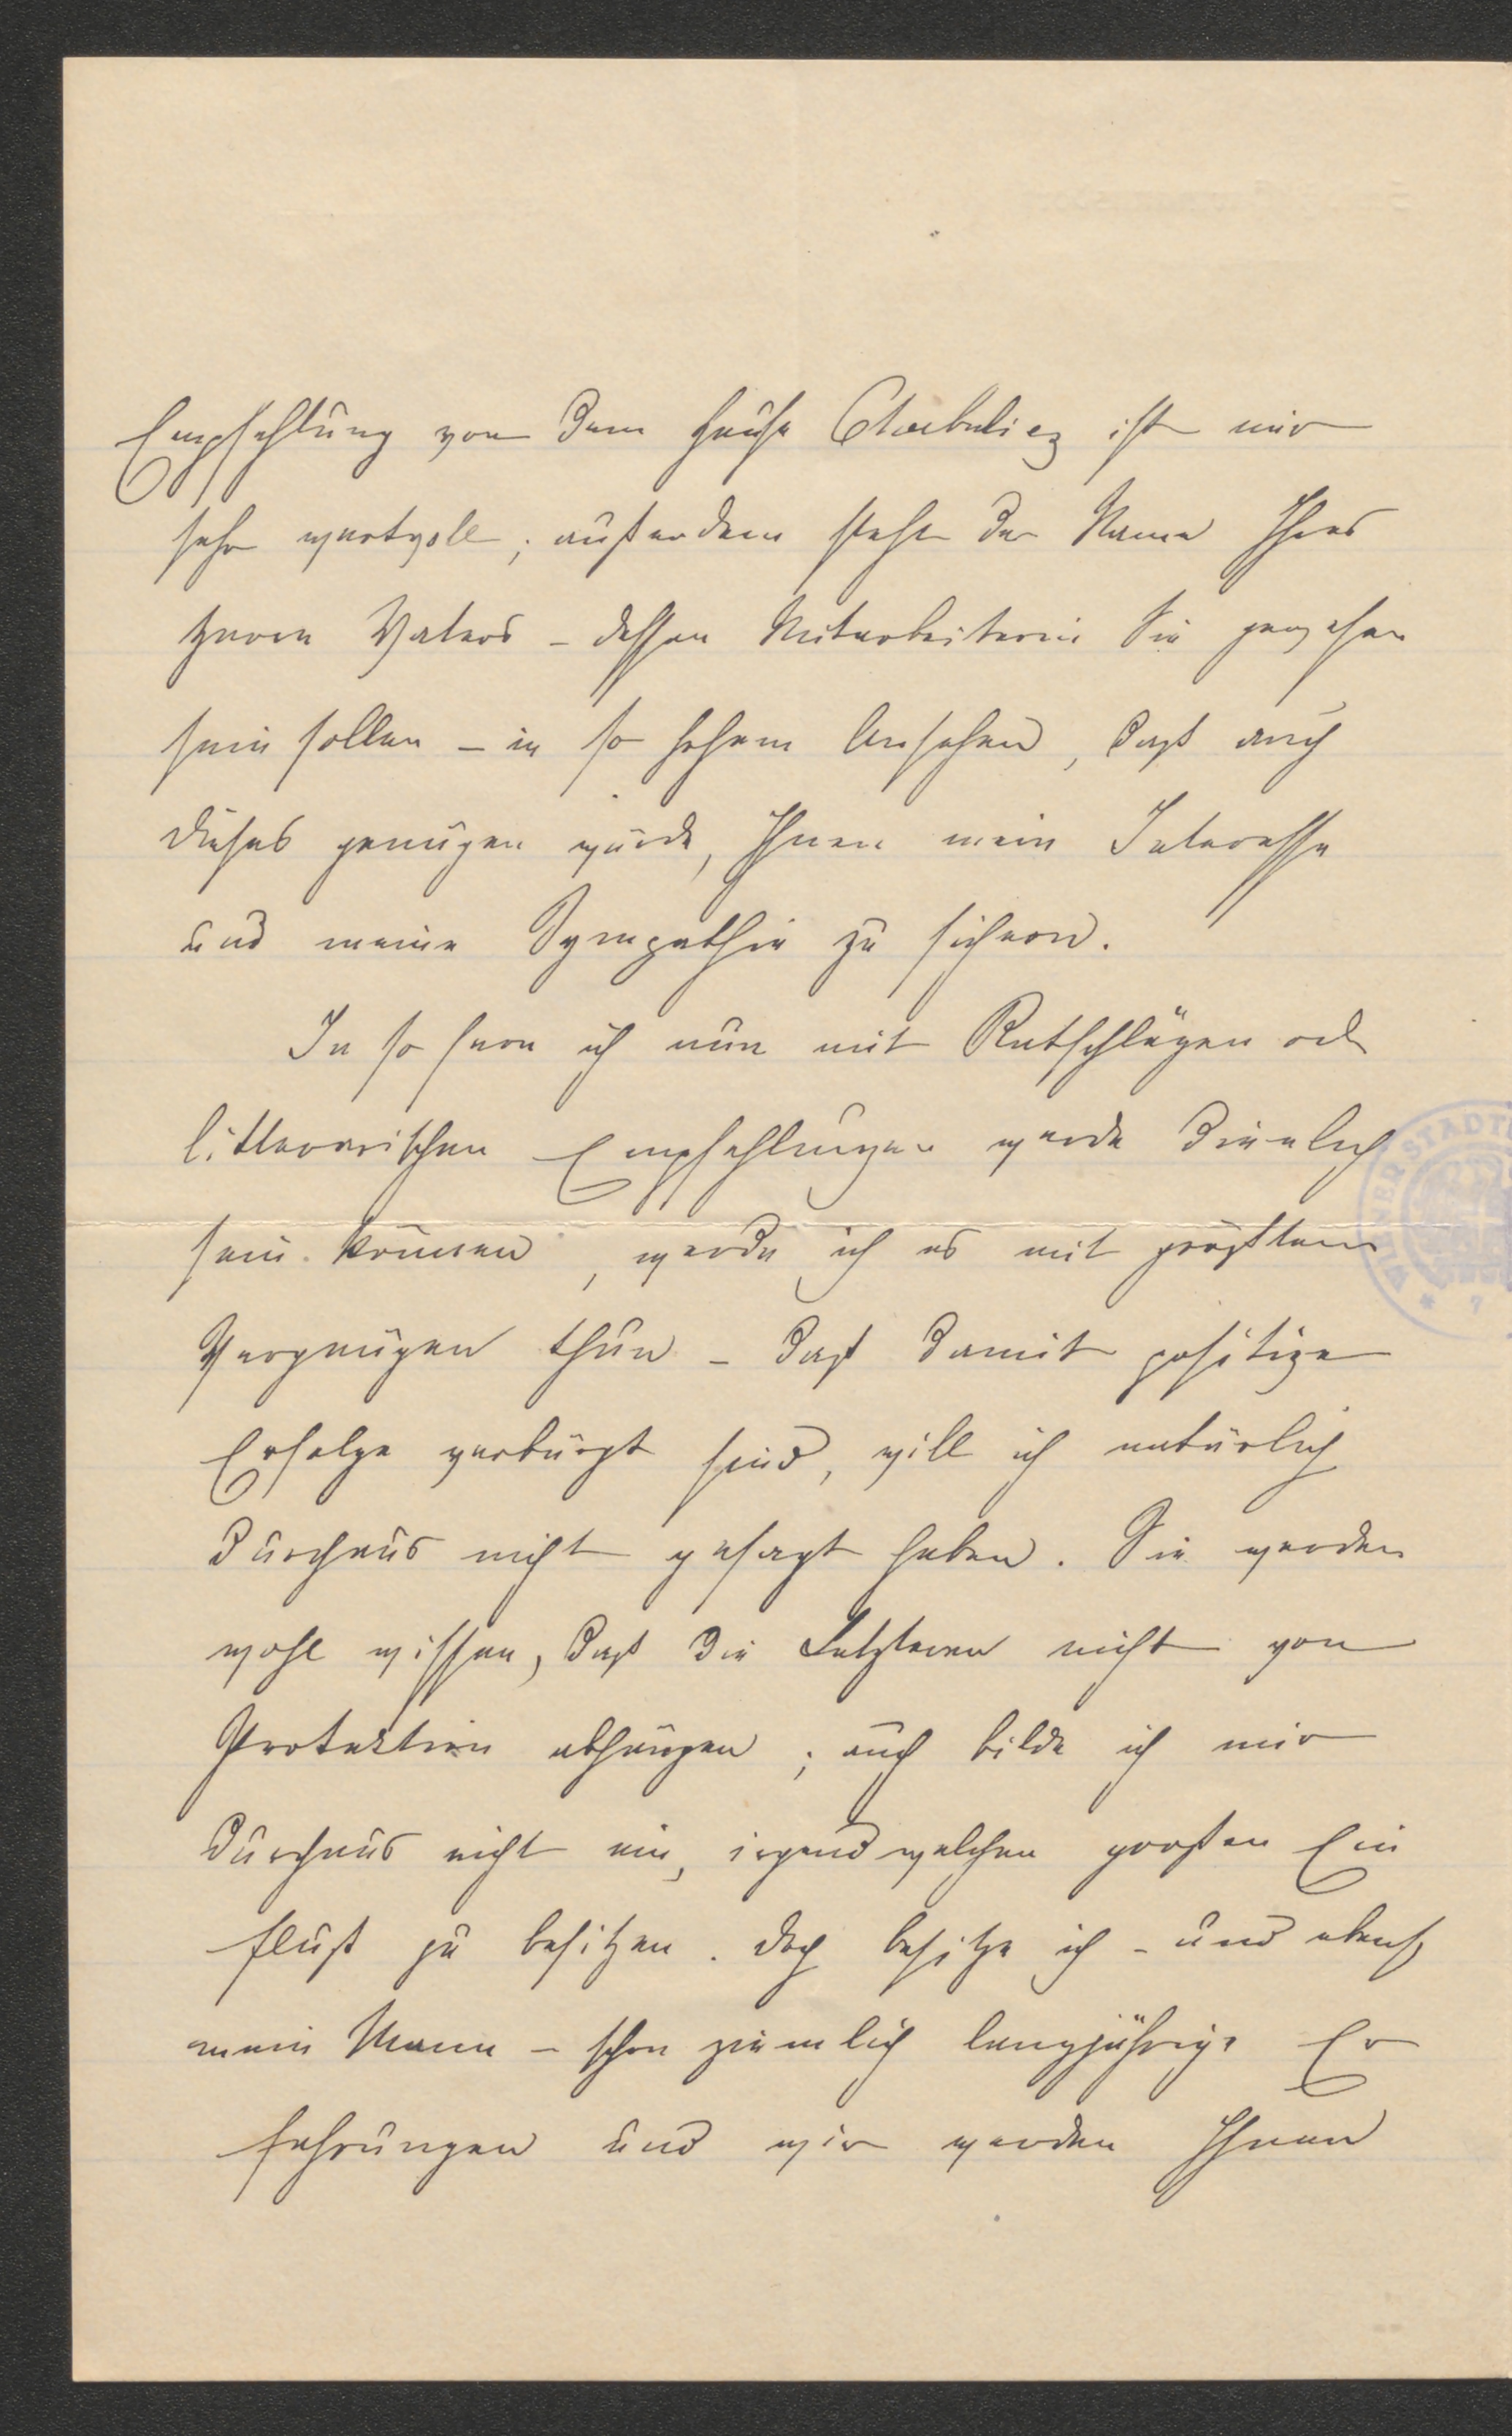 Empfehlung von dem Hause Cherbuliez ist mir
sehr wertvoll; außerdem steht der Name Ihres
Herrn Vaters – dessen Mitarbeiterin Sie gewesen
sein sollen – in so hohem Ansehen, daß auch
dieses genügen würde, Ihnen mein Interesse
und meine Sympathie zu sichern.
In so fern ich nun mit Ratschlägen od
litterarischen Empfehlungen werde dienlich
sein können, werde ich es mit größtem
Vergnügen thun – daß damit positive
Erfolge verbürgt sind, will ich natürlich
durchaus nicht gesagt haben. Sie werden
wohl wissen, daß die Letzteren nicht von
Protektion abhängen; auch bilde ich mir
durchaus nicht ein, irgend welchen großen Ein
fluß zu besitzen. Doch besitze ich – und ebenso
mein Mann – schon ziemlich langjährige Er
fahrungen und wir werden Ihnen